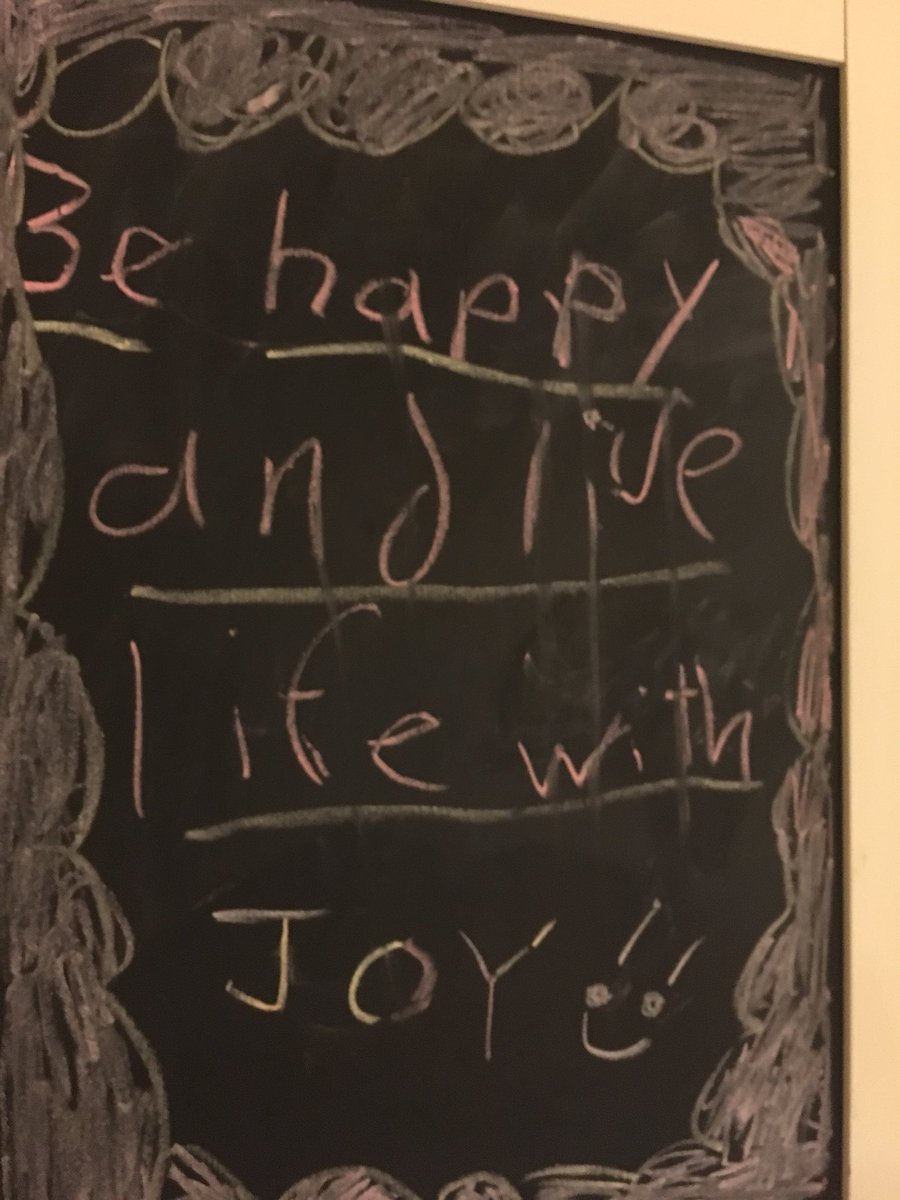 Be happy
and live
life with
JOY